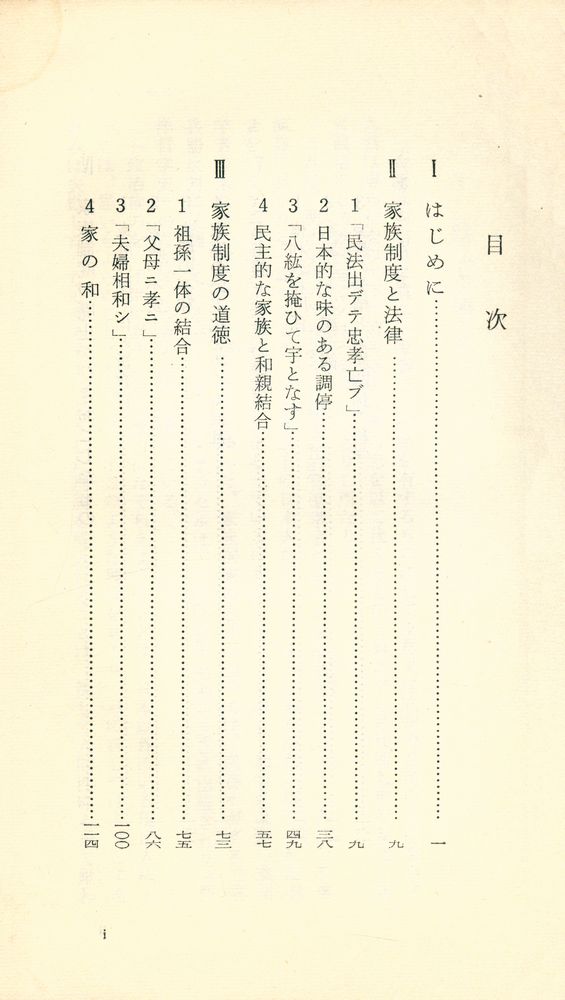 目次
Ⅰ はじめに……………………一
Ⅱ 家族制度と法律……………………九
1 「民法出デテ忠孝亡ブ」……………………九
2 日本的な味のある調停……………………三八
3 「八紘を掩ひて宇となす」……………………四九
4 民主的な家族と和親結合……………………五七
Ⅲ 家族制度の道徳……………………七三
1 祖孫一体の結合……………………七五
2 「父母ニ孝ニ」……………………八六
3 「夫婦相和シ」……………………一〇〇
4 家の和……………………一一四
i